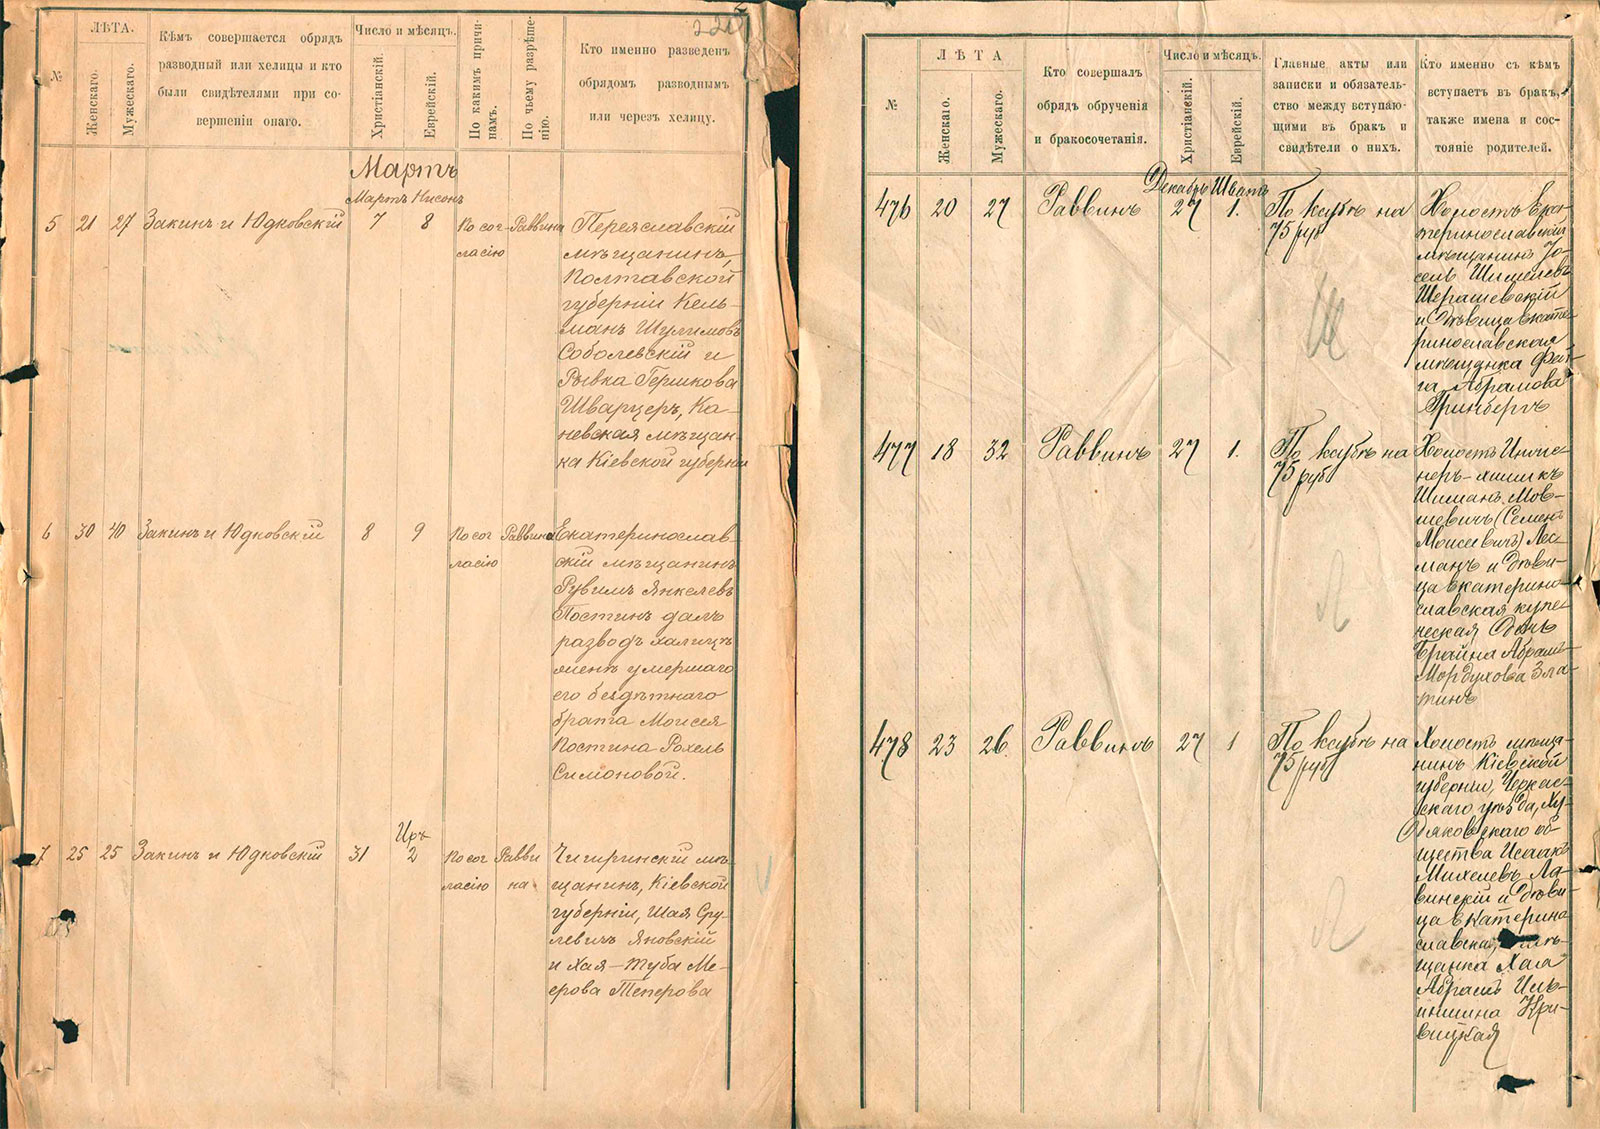 220
№
ЛѢТА.
Женскаго.
Мужескаго.
Кѣмъ совершается обрядъ
разводный или хелицы и кто
были свидѣтелями при со-
вершеніи онаго.
Число и мѣсяцъ.
Христіанскій.
Еврейскій.
По какимъ причи-
намъ.
По чьему разрѣше-
нію.
Кто именно разведенъ
обрядомъ разводнымъ
или черезъ хелицу.
Мартъ
Мартъ Нисонъ
5 21 27 Закинъ и Юдковскій 7 8 По сог- Раввина
ласію
Переяславскій
мѣщанинъ,
Полтавской
губерніи Кель-
манъ Шулимовъ
Соболевскій и
Рывка Гершкова
Шварцеръ, Ка-
невская мѣщан-
ка Кіевской губерніи
6 30 40 Закинъ и Юдковскій 8 9 По сог Раввина
ласію
Екатеринослав-
скій мѣщанинъ
Рувимъ Янкелевъ
Постинъ далъ
разводъ халицъ
женѣ умершаго
его бездѣтнаго
брата Моисея
Постина Рохель
Симоновой.
Иръ
7 25 25 Закинъ и Юдковскій 31 2 По сог Равви
ласію на
Чигиринскій мѣ-
щанинъ, Кіевской
губерніи, Шая Сру-
левичъ Яновскій
и Хая-Туба Ме-
ерова Теперова
№
ЛѢТА
Женскаго.
Мужескаго.
Кто совершалъ
обрядъ обрученія
и бракосочетанія.
Число и мѣсяцъ.
Христіанскій.
Еврейскій.
Главные акты или
записки и обязатель-
ство между вступаю-
щими въ бракъ и
свидѣтели о нихъ.
Кто именно съ кѣмъ
вступаетъ въ бракъ,
также имена и сос-
тояніе родителей.
Декабрь Шватъ
476 20 27 Раввинъ 27 1. По ктубѣ на
75 руб
Холостъ Ека-
теринославскій
мѣщанинъ Іо-
сель Шимелевъ
Шерашевскій
и дѣвица Екате-
ринославская
мѣщанка Фей-
га Абрамова
Гринбергъ
477 18 32 Раввинъ 27 1. По ктубѣ на
75 руб
Холостъ Инже-
неръ-химикъ
Шиманъ Мов-
шевичъ (Семенъ
Моисеевичъ) Лес-
манъ и дѣви-
ца Екатерино-
славская купе-
ческая дочь
Брайна Абрамъ-
Мордухова Зла-
тинъ
478 23 26 Раввинъ 27 1 По ктубѣ на
75 руб
Холостъ мѣща-
нинъ Кіевской
губерніи, Черкас-
скаго уѣзда, Ху-
дяковскаго об-
щества Исаакъ
Михелевъ Ла-
винскій и дѣви-
ца Екатерино-
славская мѣ-
щанка Хая
Абрамъ Иль-
иншина Кри-
вицкая